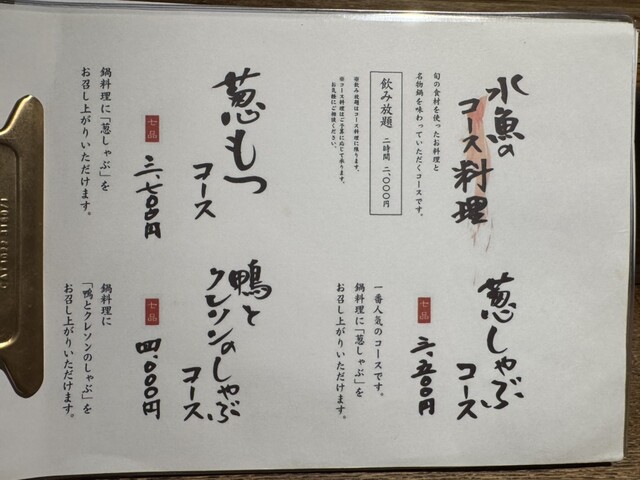 水魚の
コース料理
旬の食材を使ったお料理と
名物鍋を味わっていただくコースです。
飲み放題 二時間 二、〇〇〇円
※飲み放題はコース料理に限ります。
※コース料理はご予算に応じて承ります。
お気軽にご相談ください。
葱しゃぶ
コース
七品
三、五〇〇円
一番人気のコースです。
鍋料理に「葱しゃぶ」を
お召し上がりいただけます。
葱もつ
コース
七品
三、七〇〇円
鍋料理に「葱しゃぶ」を
お召し上がりいただけます。
鴨と
クレソンのしゃぶ
コース
七品
四、〇〇〇円
鍋料理に
「鴨とクレソンのしゃぶ」を
お召し上がりいただけます。